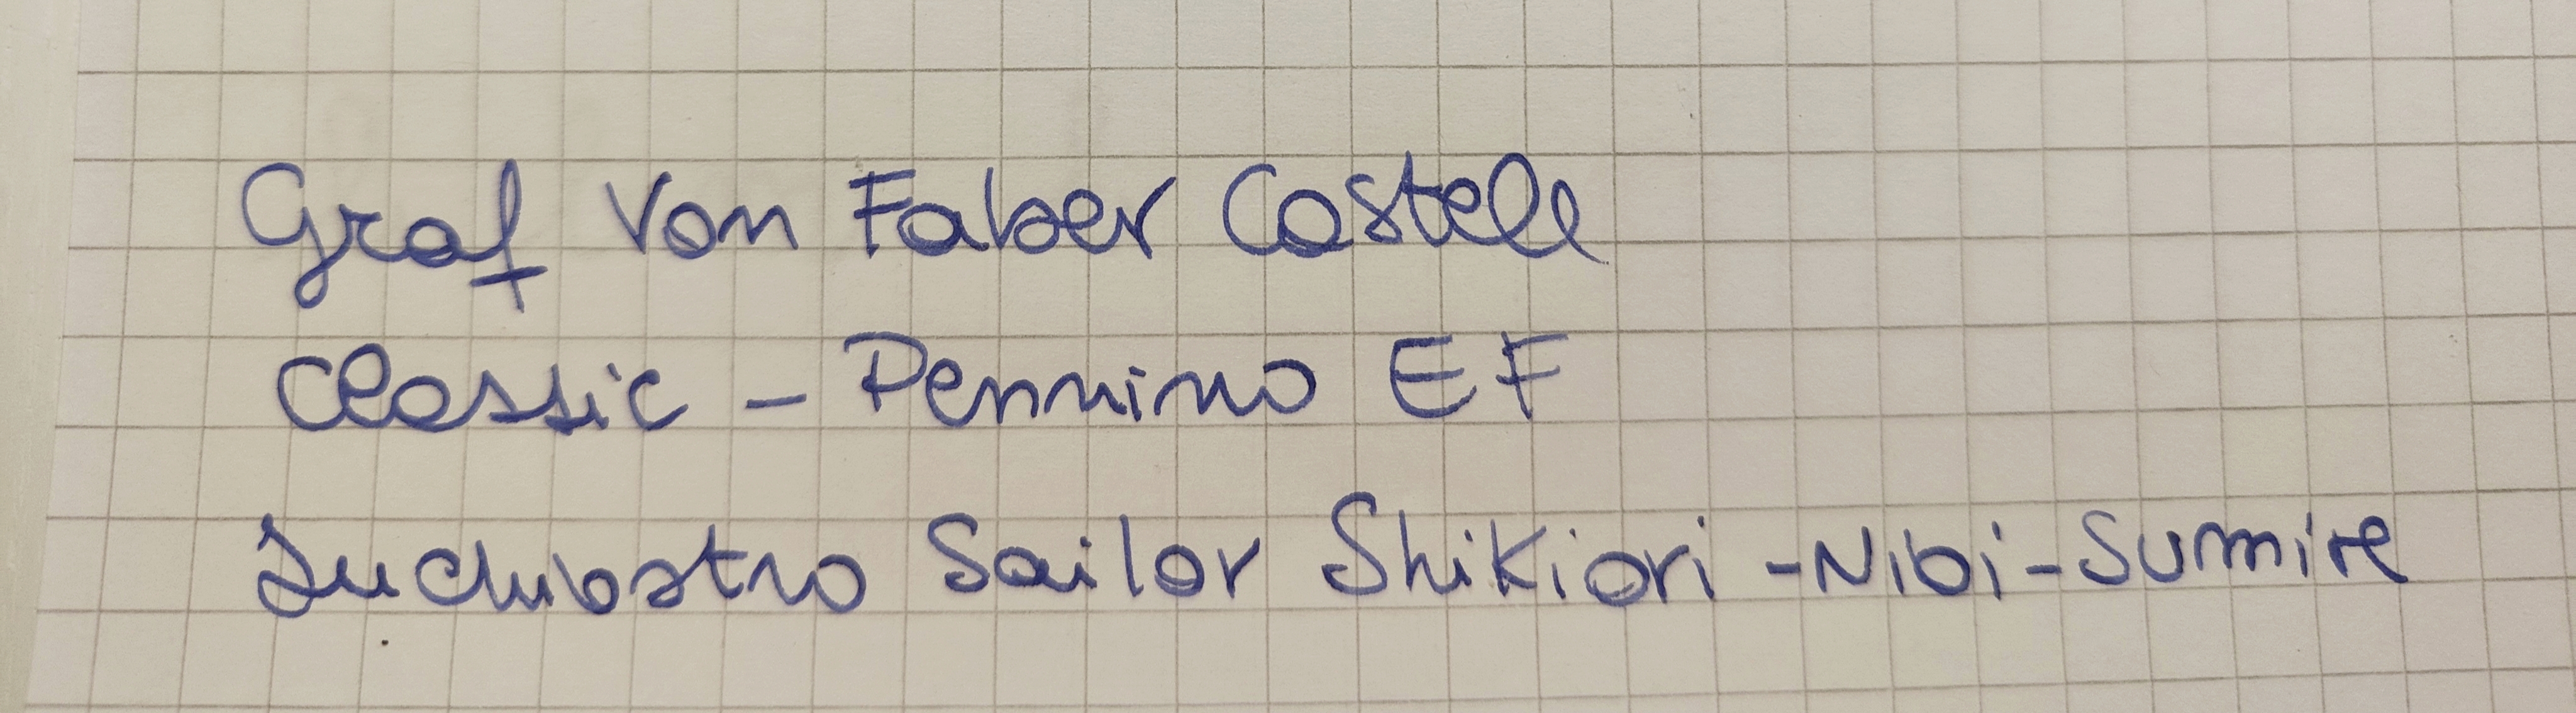 Graf Von Faber Castell
Classic - Pennino EF
Inchiostro Sailor Shikiori - Nibi - Sumire